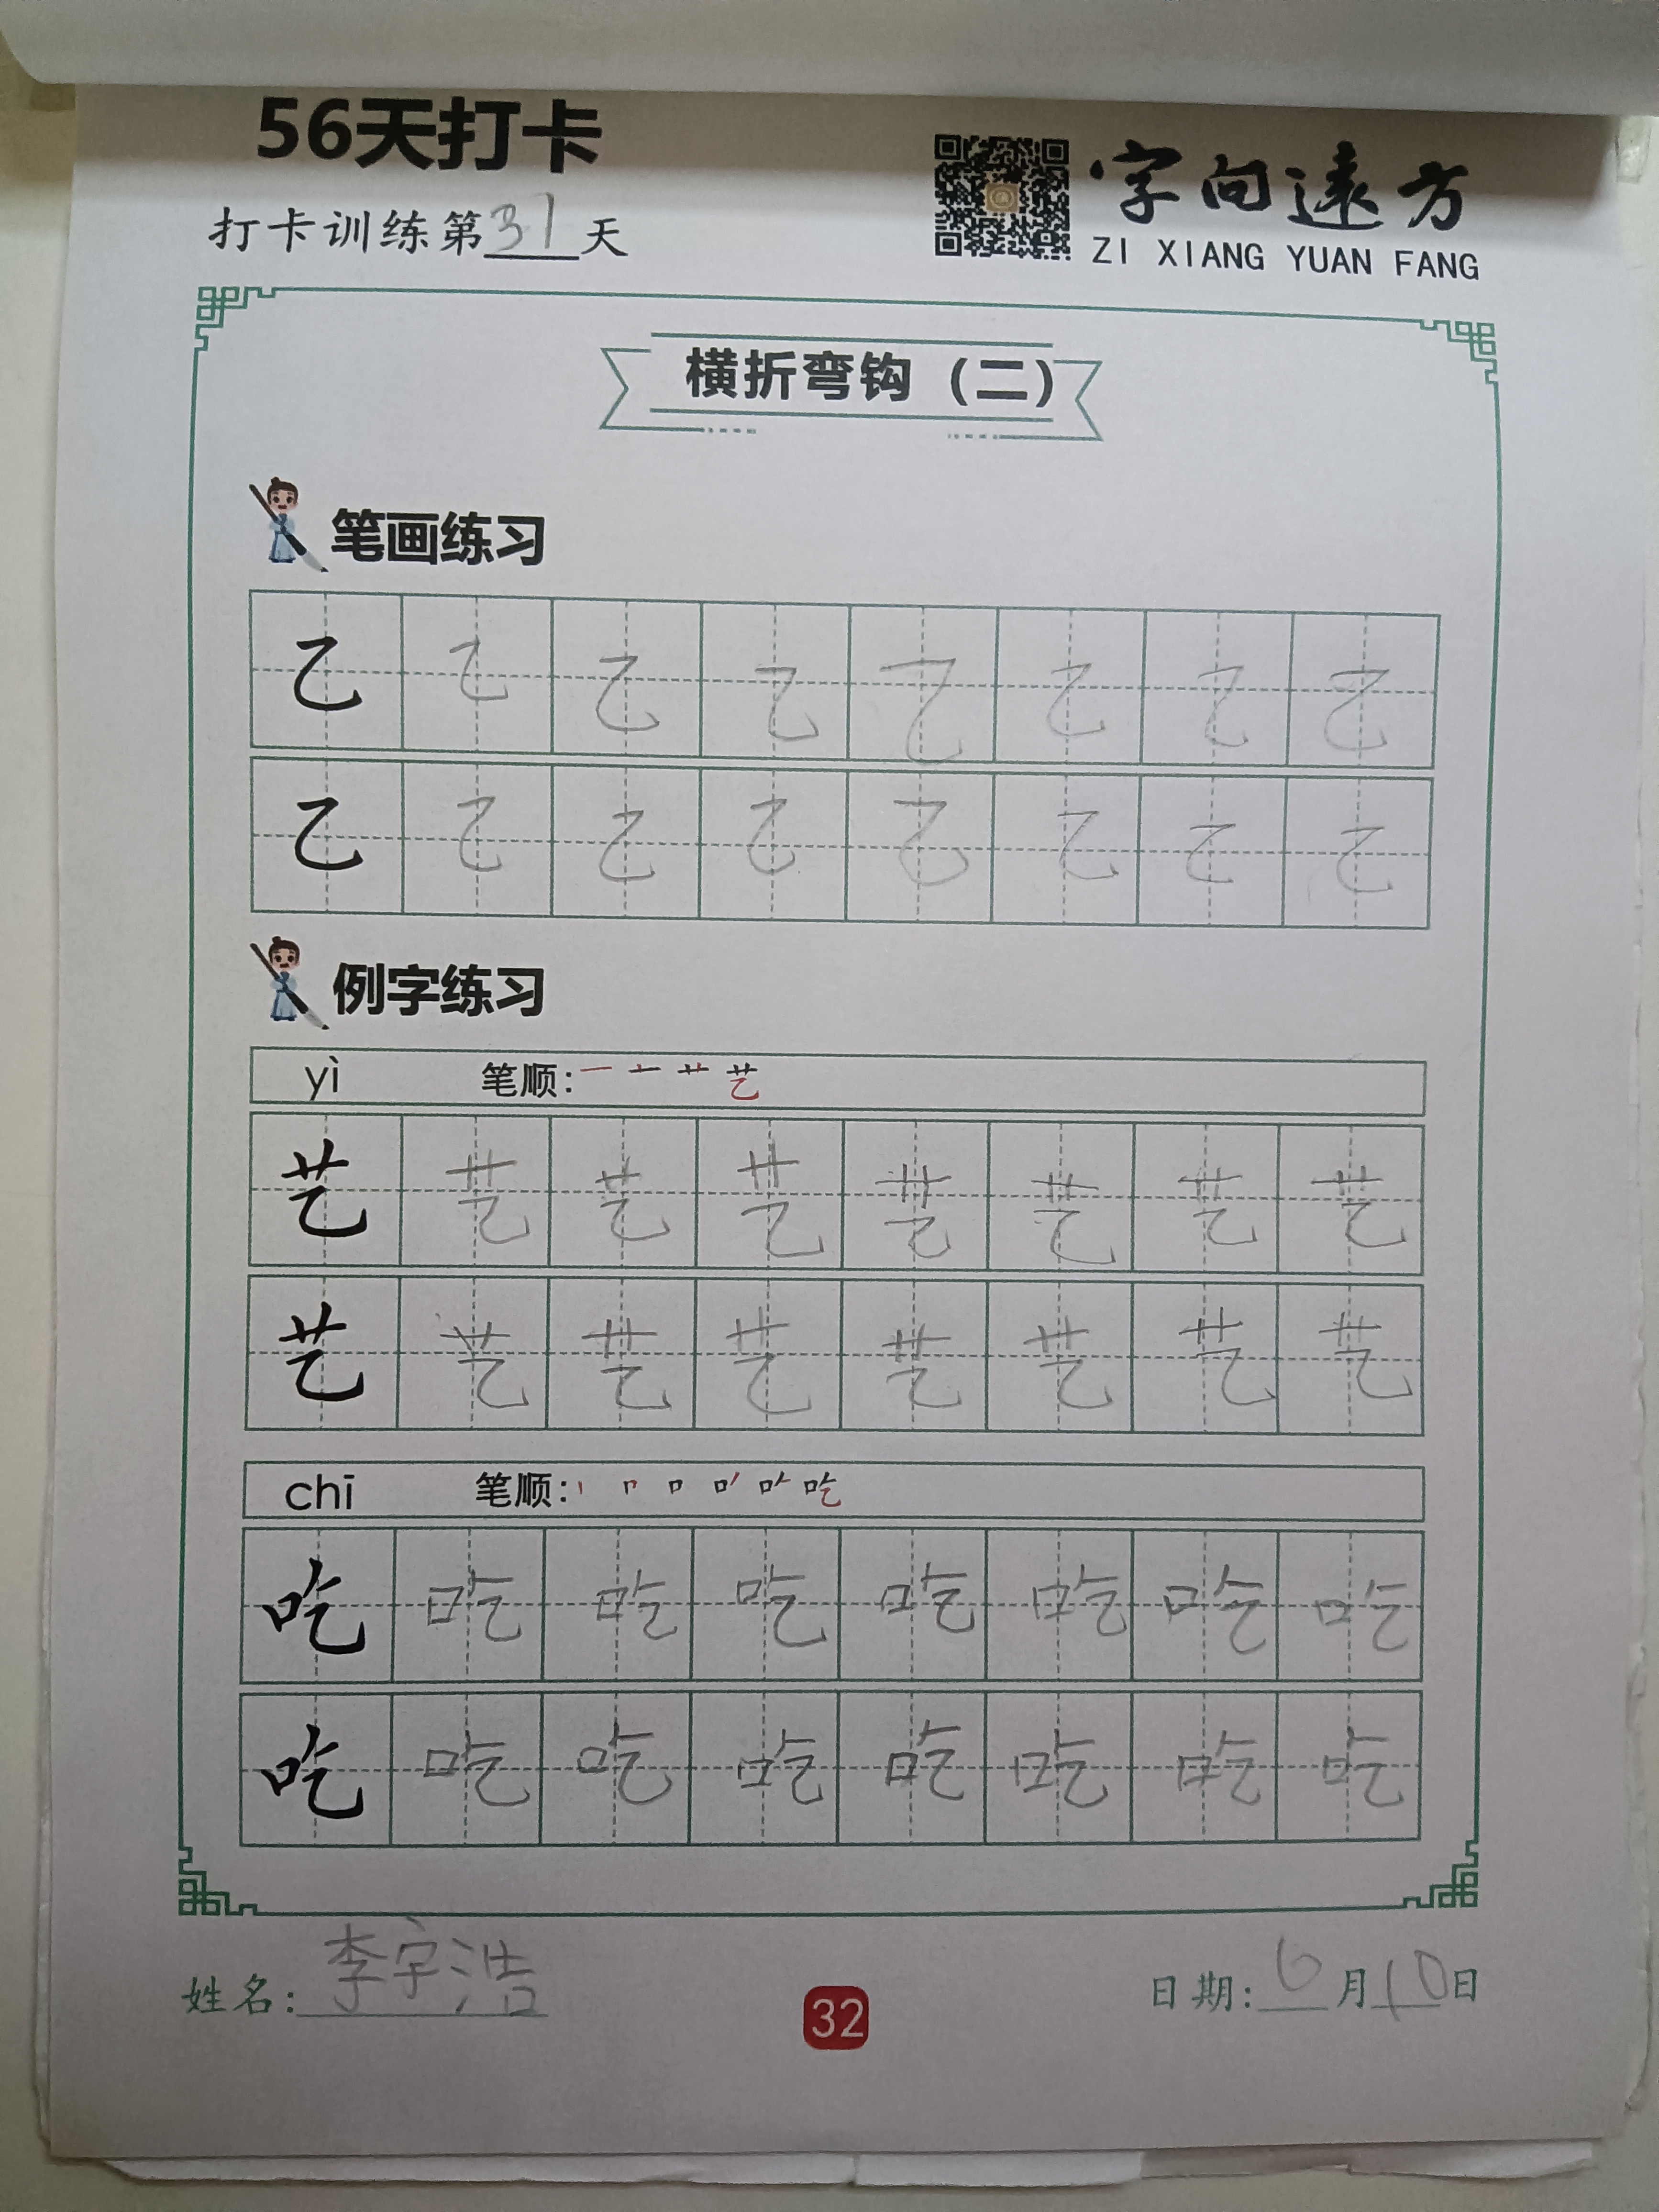 56天打卡
打卡训练第31天
字向遠方
ZI XIANG YUAN FANG
横折弯钩（二）
笔画练习
乙 乙 乙 乙 乙 乙 乙 乙
乙 乙 乙 乙 乙 乙 乙 乙
例字练习
yì 笔顺: 一 十 艹 艺
艺 艺 艺 艺 艺 艺 艺 艺
艺 艺 艺 艺 艺 艺 艺 艺
chī 笔顺: 丨 冂 口 吃
吃 吃 吃 吃 吃 吃 吃 吃
吃 吃 吃 吃 吃 吃 吃 吃
姓名: 李宇浩
32
日期: 6月10日